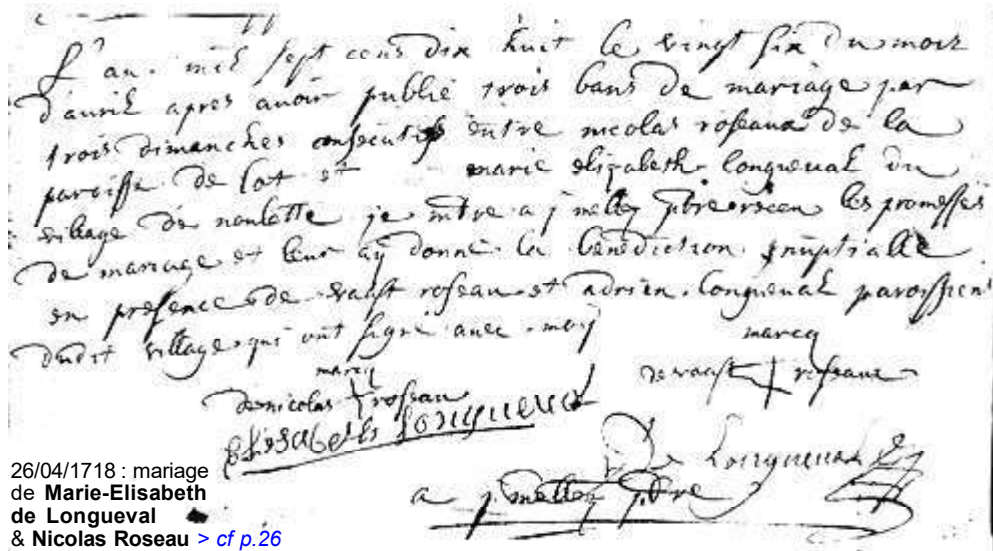 L'an mil sept cens dix huit le vingt six du mois
d'avril apres avoir publié trois bans de mariage par
trois dimanches consecutifs entre nicolas roseaux de la
paroisse de lot et marie elizabeth longueval du
village de noulette je a j mellez pbre les promesses
de mariage et leur ay donné la benediction nuptialle
en presence de vaast roseau et adrien longueval paroissiens
dudit village qui ont signé avec moy
marcq
marcq
de vaast roseaux
de nicolas roseau
Elisabeth Longueval
De Longueval
a j mellez pbre
26/04/1718 : mariage
de Marie-Elisabeth
de Longueval
& Nicolas Roseau > cf p.26